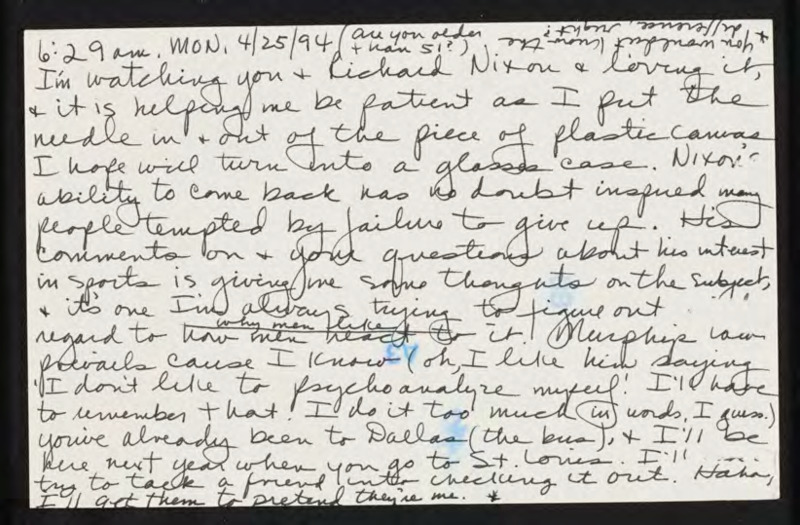 6:29 am. MON, 4/25/94 (are you older
than 51?)
+ you wouldn't know the
difference, right?
I'm watching you + Richard Nixon & loving it,
+ it is helping me be patient as I put the
needle in + out of the piece of plastic canvas
I hope will turn into a glasses case. Nixon's
ability to come back has no doubt inspired many
people tempted by failure to give up. His
comments on + your questions about his interest
in sports is giving me some thoughts on the subject,
+ it's one I'm always trying to figure out
why men like
regard to how men react to it! Murphy's law
prevails cause I know (oh, I like him saying
"I don't like to psychoanalyze myself." I'll have
to remember that. I do it too much (in words, I guess.)
you've already been to Dallas (the bus), + I'll be
here next year when you go to St. Louis. I'll
try to talk a friend into checking it out. Haha,
I'll get them to pretend they're me. *